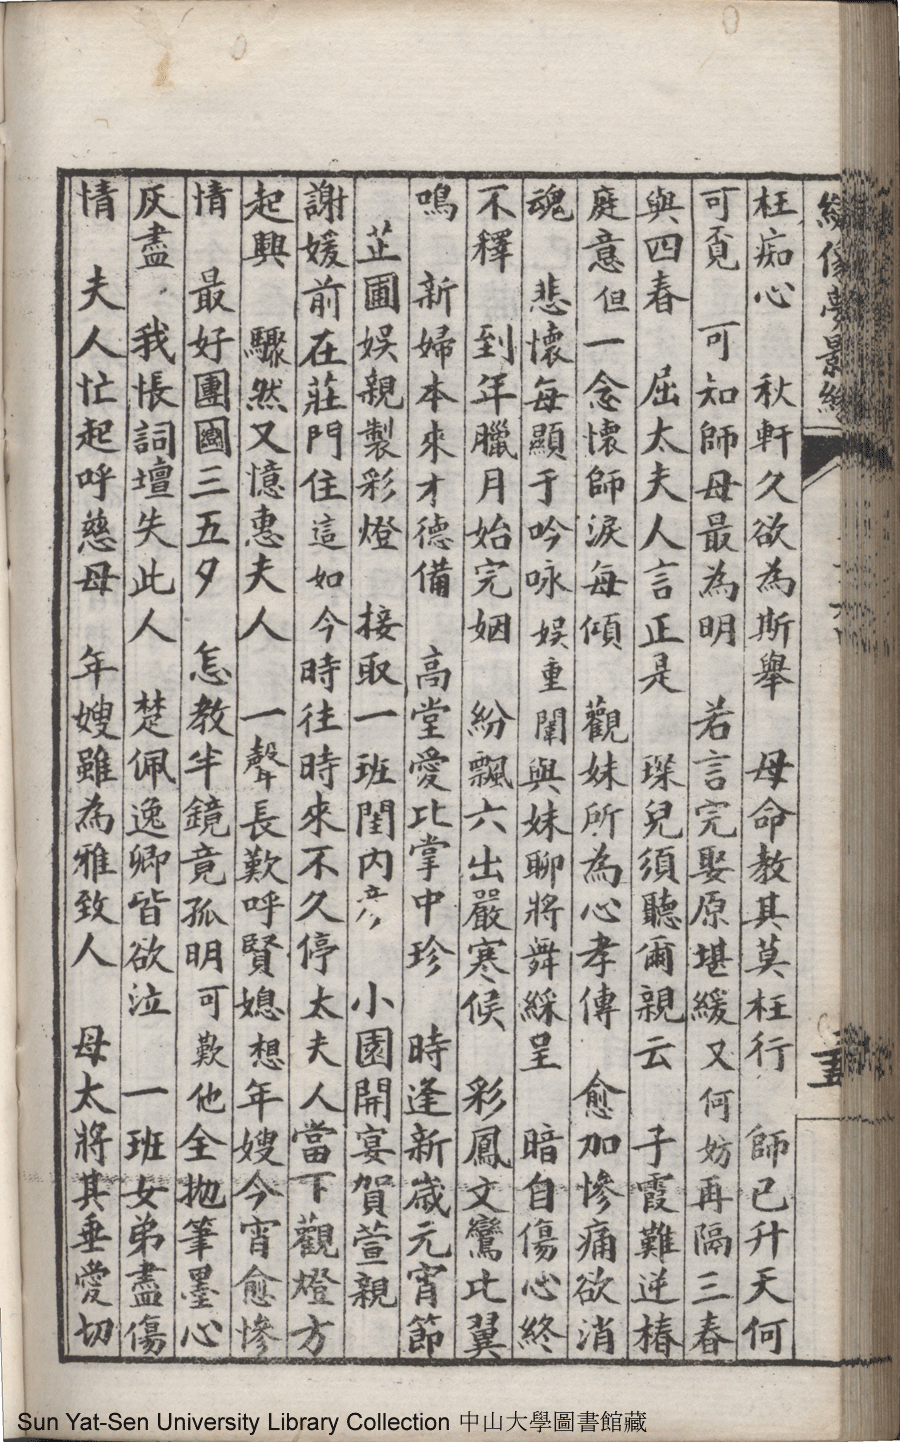 繡像夢影緣
枉痴心　秋軒久欲為斯舉　母命教其莫枉行　師已升天何
可覔　可知師母最為明　若言完娶原堪緩又何妨再隔三春
與四春　屈太夫人言正是　琛兒須聽爾親云　子霞難逆椿
庭意但一念懷師淚每傾　觀妹所為心孝傳　愈加慘痛欲消
魂　悲懷每顯于吟咏娱重闈與妹聊將舞綵呈　暗自傷心終
不釋　到年臘月始完姻　紛飄六出嚴寒候　彩鳳文鸞比翼
鳴　新婦本來才德備　高堂愛比掌中珍　時逢新歲元宵節
芷圃娱親製彩燈　接取一班閨內彥　小園開宴賀萱親
謝媛前在莊門住這如今時往時來不久停太夫人當下觀燈方
起興　驟然又憶惠夫人　一聲長歎呼賢媳想年嫂今宵愈慘
情　最好團圞三五夕　怎教半鏡竟孤明可歎他全拋筆墨心
灰盡　我悵詞壇失此人　楚佩逸卿皆欲泣　一班女弟盡傷
情　夫人忙起呼慈母　年嫂雖為雅致人　母太將其垂愛切
Sun Yat-Sen University Library Collection 中山大學圖書館藏